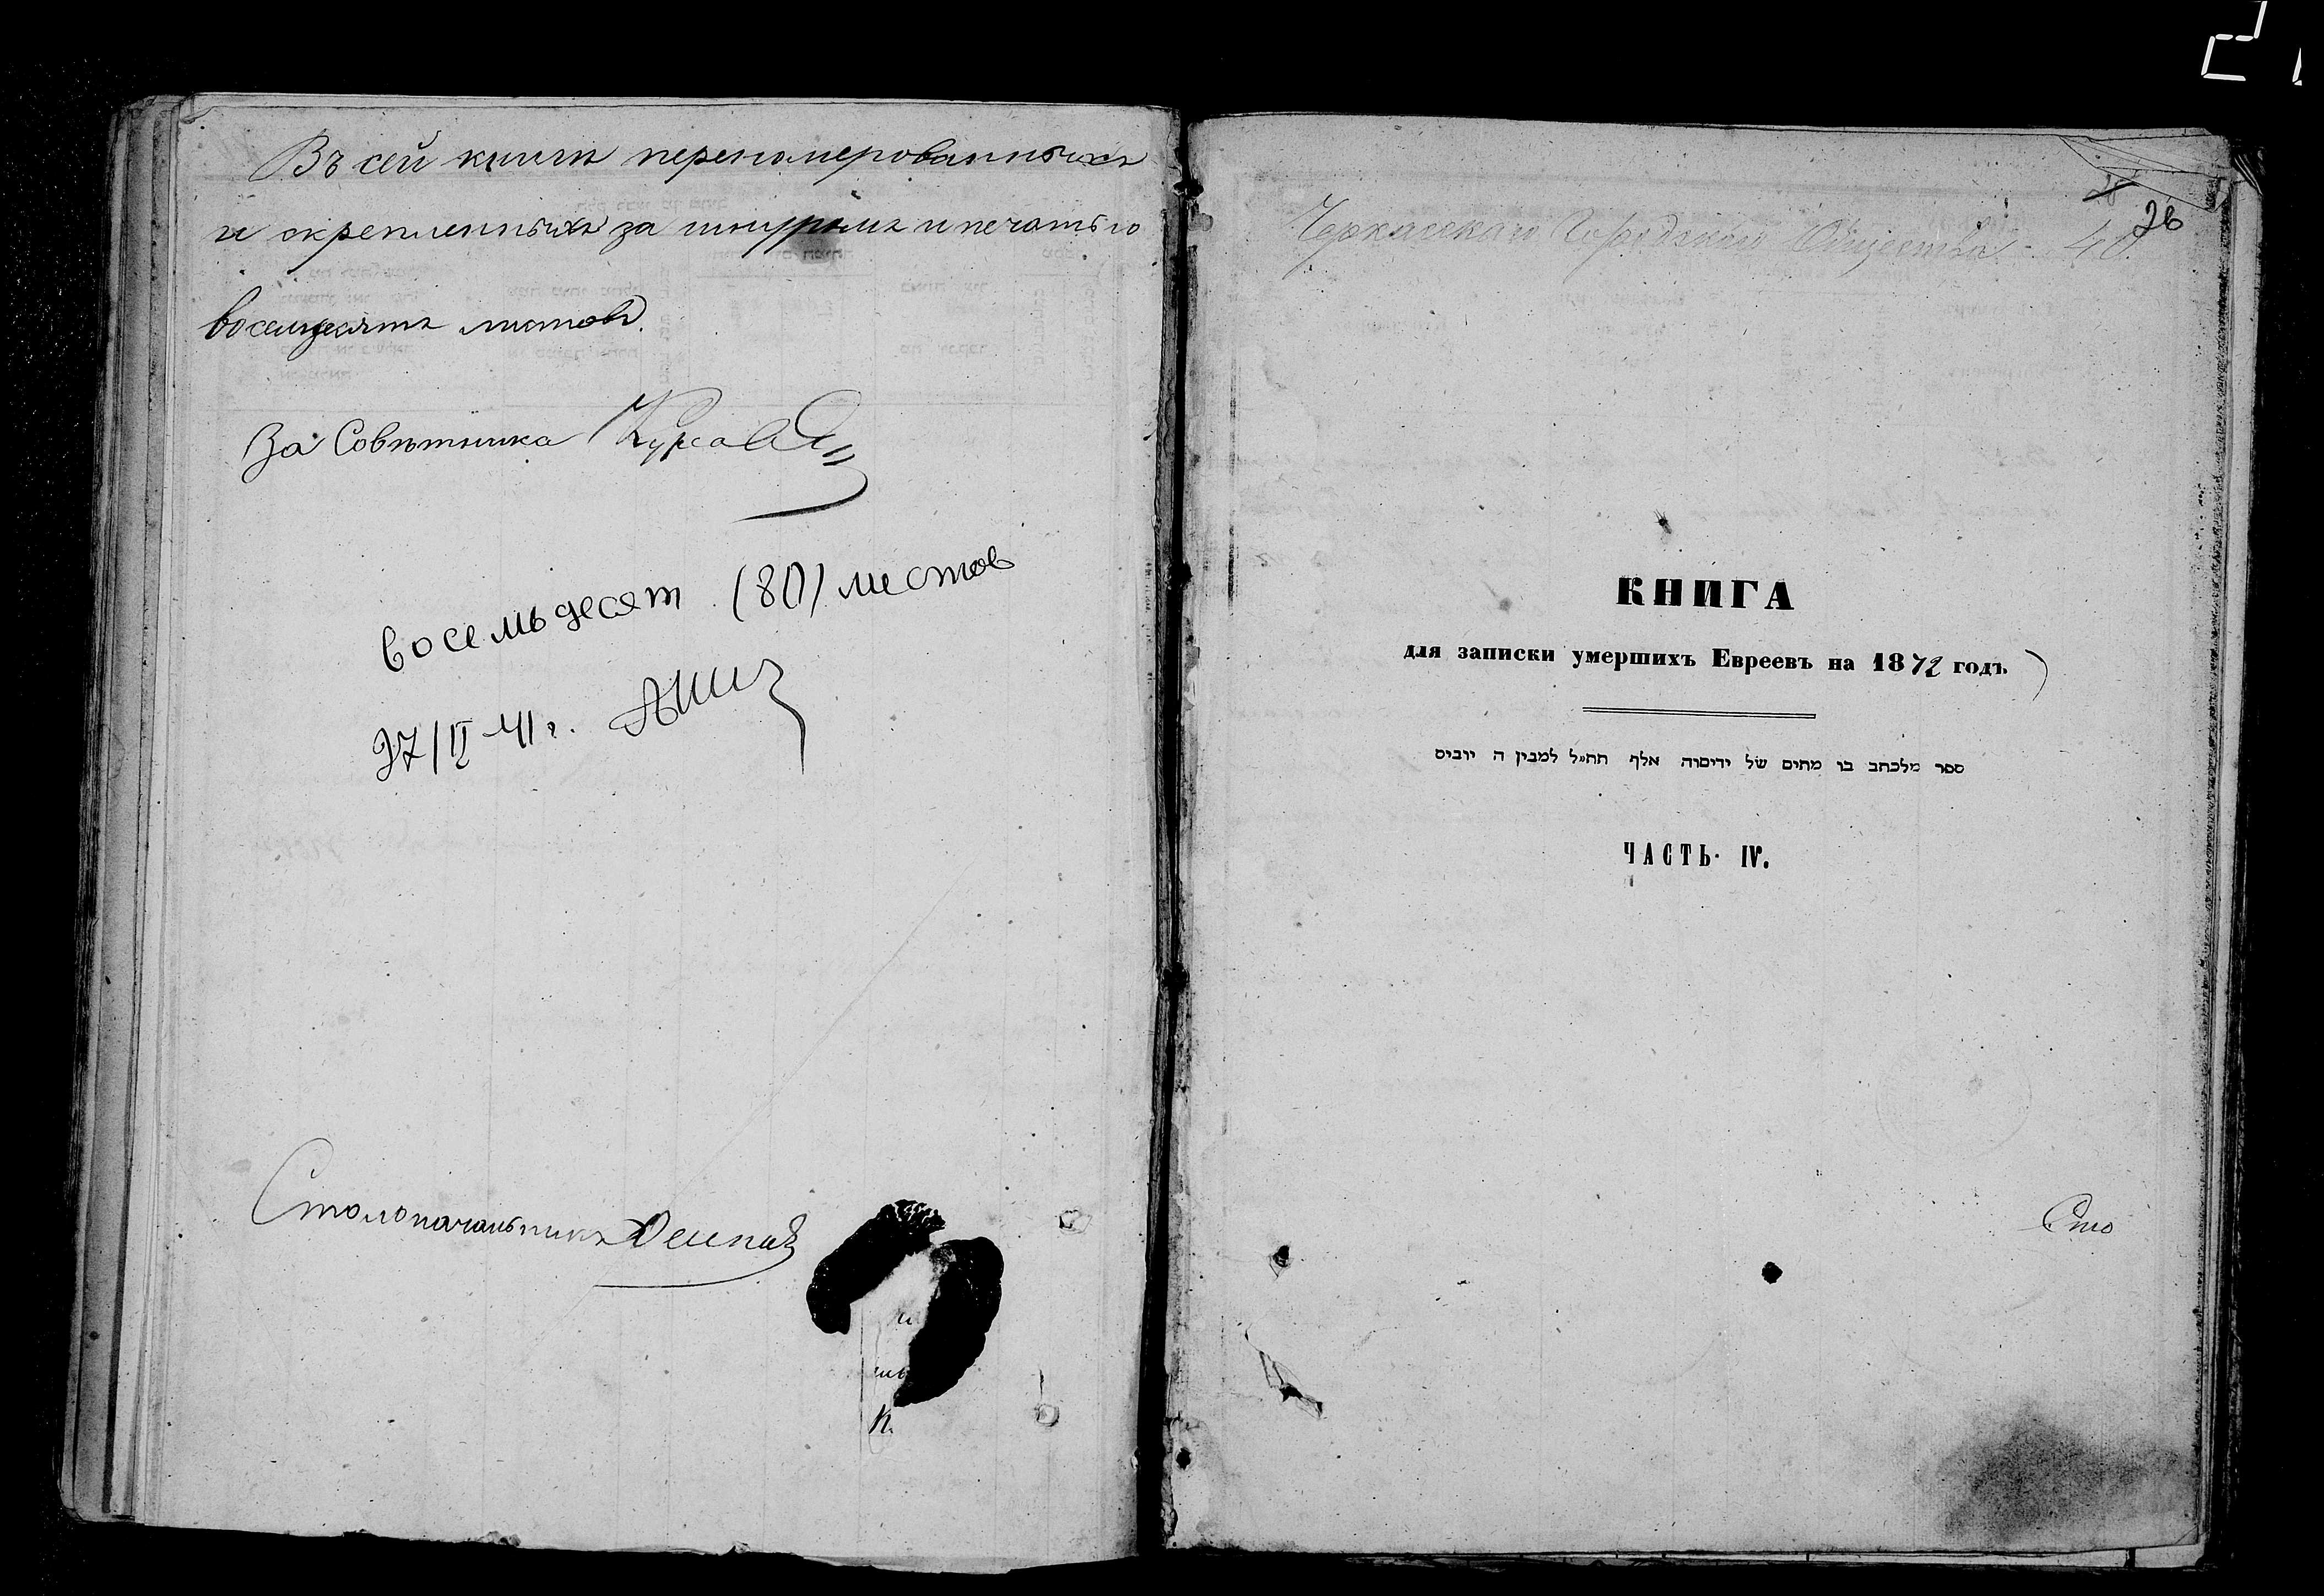 Въ сей книгѣ перенумерованныхъ
и скрепленныхъ за шнуромъ и печатью
восемдесятъ листовъ.
За Совѣтника
восемьдесят (80) листов
27/II-41 г.
Столоначальникъ
26
Черкасскаго Городскаго Общества - 40.
КНИГА
для записки умершихъ Евреевъ на 1872 годъ
ספר מלכתב בו מתים של ידיסוה אלף תת״ל למבין ה יוביס
ЧАСТЬ IV.
Сто